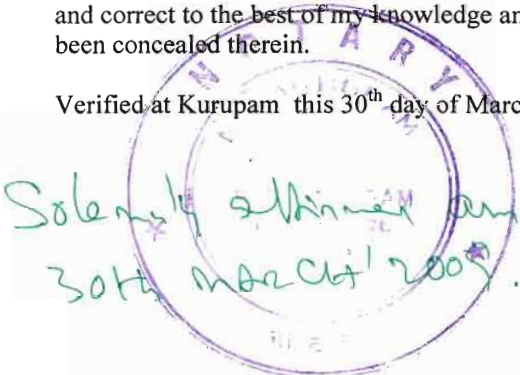 and correct to the best of my knowledge an
been concealed therein.
NOTARY
Verified at Kurupam this 30th day of Marc
Solemnly affirmed an
30th MARCH' 2009.